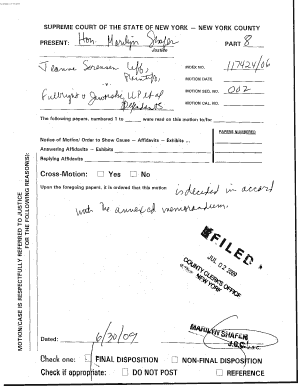 SUPREME COURT OF THE STATE OF NEW YORK – NEW YORK COUNTY
PRESENT: Hon. Marilyn Shafer PART 8
Justice
Jeanne Sorensen
INDEX NO. 117424/06
MOTION DATE
Fulbright & Jaworski LLP et al
MOTION SEQ. NO. 002
Defendants
MOTION CAL. NO.
The following papers, numbered 1 to were read on this motion to/for
PAPERS NUMBERED
Notice of Motion/ Order to Show Cause – Affidavits – Exhibits ...
Answering Affidavits – Exhibits
Replying Affidavits
Cross-Motion: Yes No
Upon the foregoing papers, it is ordered that this motion is decided in accord
with the annexed memorandum.
MOTION/CASE IS RESPECTFULLY REFERRED TO JUSTICE
FOR THE FOLLOWING REASON(S):
FILED
JUL 02 2009
COUNTY CLERK'S OFFICE
NEW YORK
Dated: 6/30/09
MARILYN SHAFER
J.S.C.
Check one: FINAL DISPOSITION NON-FINAL DISPOSITION
Check if appropriate: DO NOT POST REFERENCE